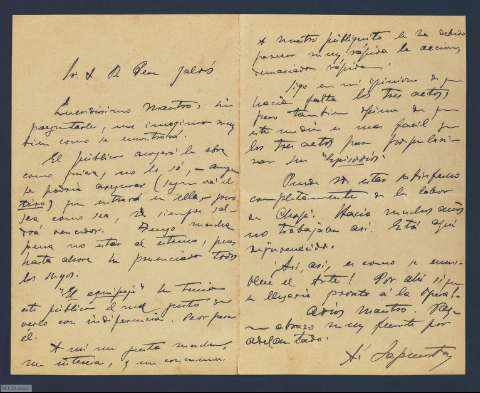 Sr D B Perez Galdós
Queridísimo Maestro, sin
preguntarle, me imagino muy
bien como se encontrará.
El público acogerá la obra
como quiera, no lo sé, — aunque
se podría asegurar
que entrará en ella, pero
sea como sea, Vd siempre sal-
drá vencedor. Tengo mucha
pena no estar al estreno, pues
hasta ahora he presenciado todos
los suyos.
"El equipaje" ha tenido
este público el mal gusto de
verlo con indiferencia. Peor para
él.
A mi me gusta mucho,
me interesa, y me conmueve.
A nuestro publiquito le ha debido
parecer muy rápida la accion,
demasiado rápida.
Sigo en mi opinion de que
hacía falta los tres actos,
pero tambien opino de que
este medio es mas facil que
los tres actos para populari-
zar sus "Episodios".
Puede Vd estar satisfecho
completamente de la labor
de Chapí. Hacía muchos años
no trabajaba así. Está aquí
rejuvenecido.
Así, así, es como se enno-
blece el Arte! Por ahí sigue
se llegaría pronto á la ópera!
Adios maestro. Reciba
un abrazo muy fuerte por
adelantado.